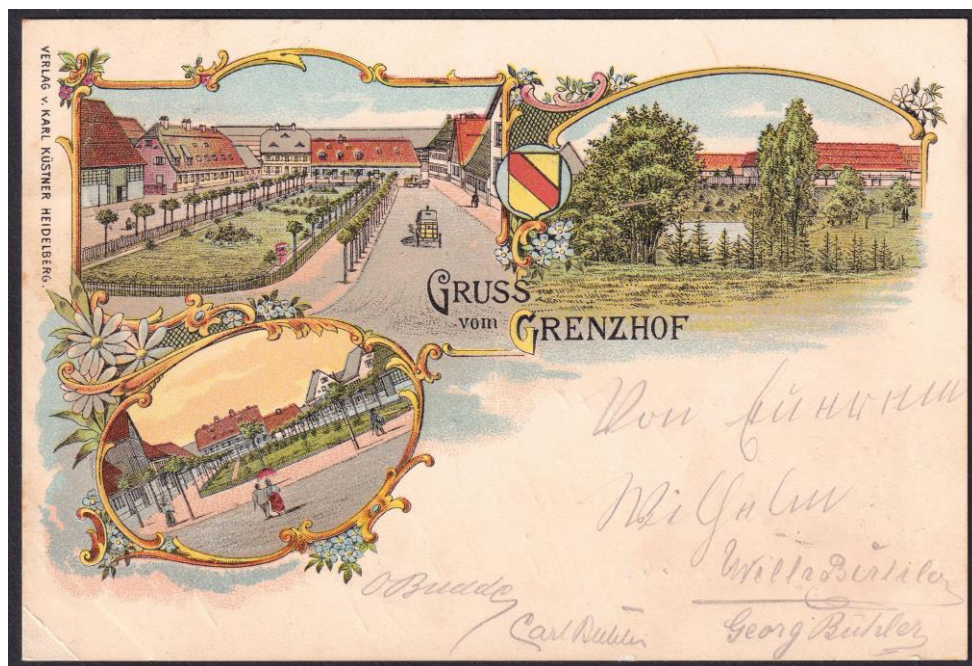 VERLAG v. KARL KÜSTNER HEIDELBERG.
GRUSS
vom GRENZHOF
Von
Wilhelm
Willy
Carl Bühler
Georg Bühler